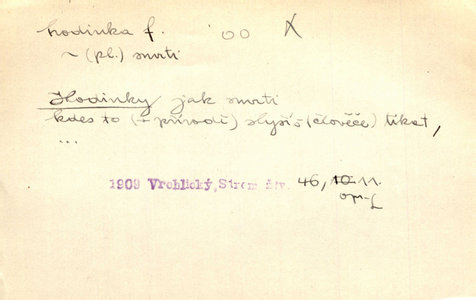 hodinka f. 00 X
~ (pl.) smrti
Hodinky jak smrti
kdes to (v přírodě) slyšíš (člověče) tikat,
...
1909 Vrchlický, Strom živ. 46, 10 11.
opr.